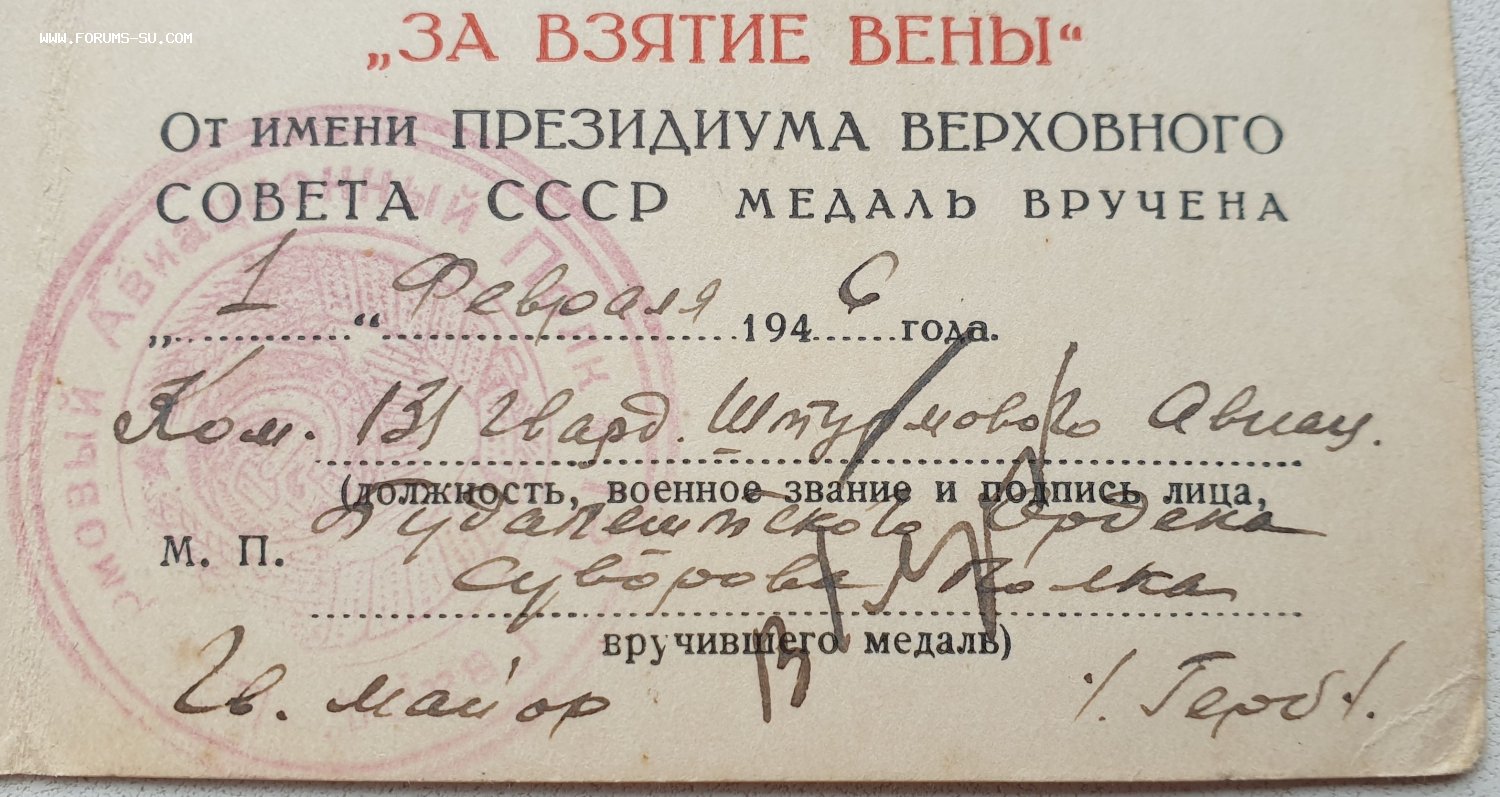 WWW.FORUMS-SU.COM
„ЗА ВЗЯТИЕ ВЕНЫ“
От имени ПРЕЗИДИУМА ВЕРХОВНОГО
СОВЕТА СССР МЕДАЛЬ ВРУЧЕНА
„1“ Февраля 1946 года.
Ком. 131 Гвард. Штурмового Авиац.
(должность, военное звание и подпись лица,
Будапештского Ордена
М. П.
Суворова Полка
вручившего медаль)
Гв. майор /Герб/.
мовый Авиационный Полк